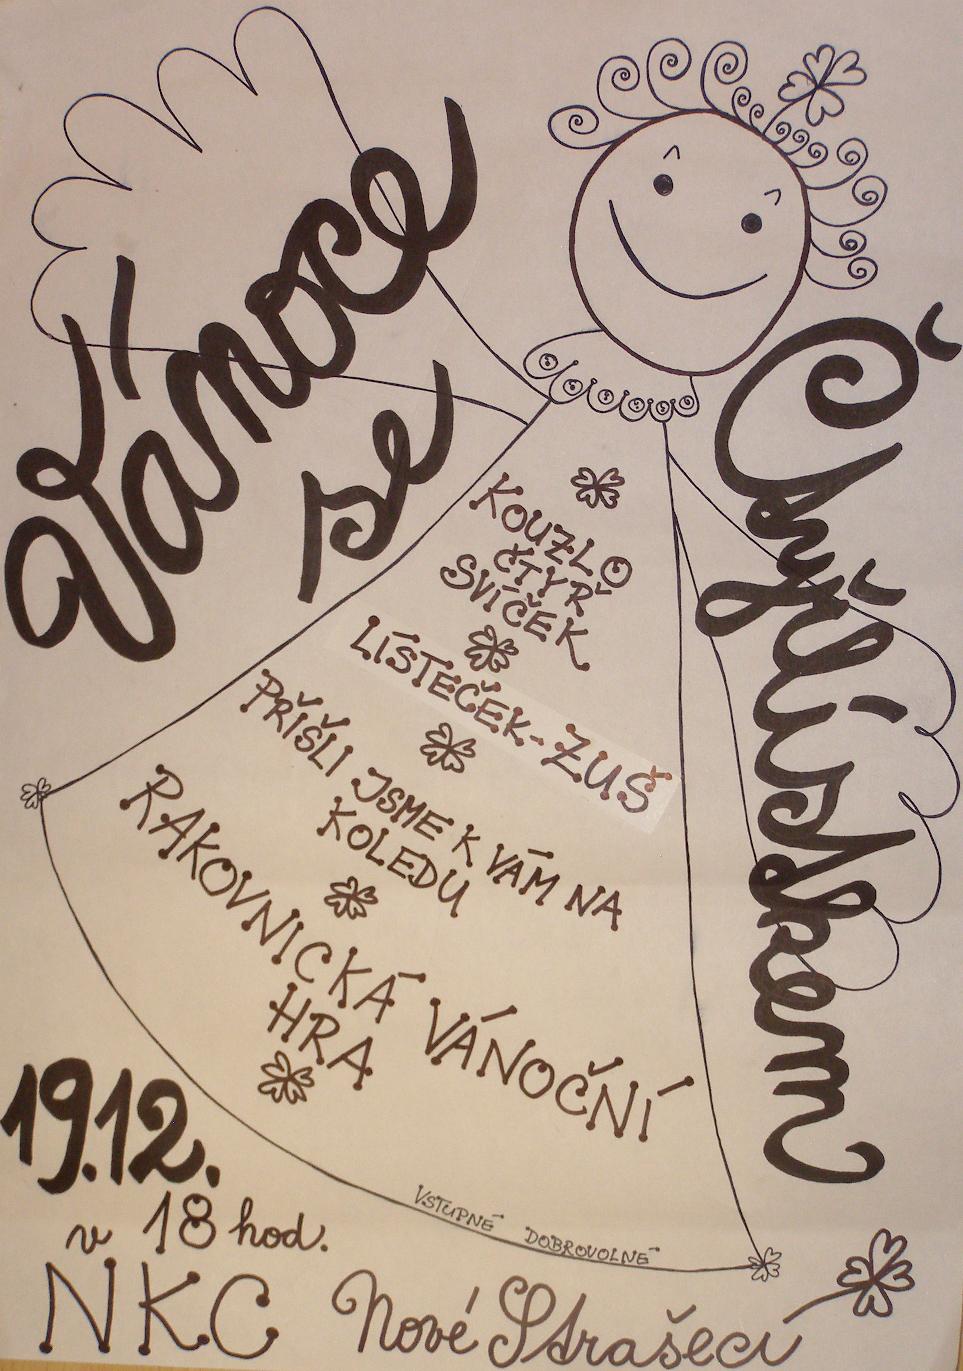 Vánoce
se
Čtyřlístkem
KOUZLO
ČTYŘ
SVÍČEK
LÍSTEČEK-ZUŠ
PŘIŠLI JSME K VÁM NA
KOLEDU
RAKOVNICKÁ VÁNOČNÍ
HRA
VSTUPNÉ DOBROVOLNÉ
19.12.
v 18 hod.
NKC Nové Strašecí